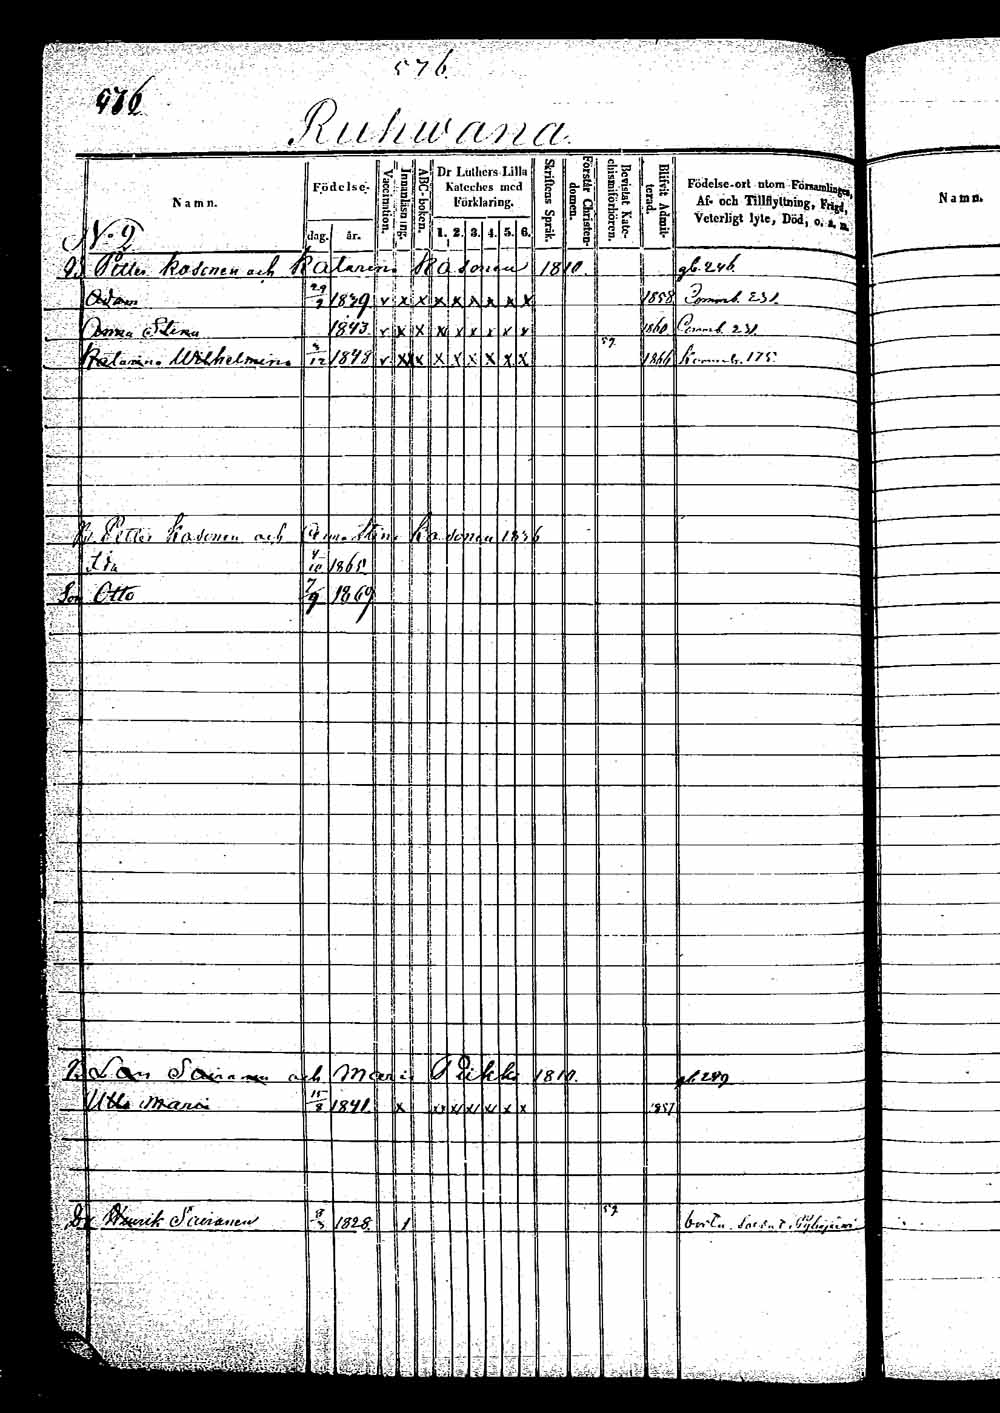 576.
576
Ruhwana.
Namn. Födelse- Vaccination. Innanläsning. ABC-boken. Dr Luthers Lilla Kateches med Förklaring. Skriftens Språk. Förstår Christendomen. Bevistat Katechismiförhören. Blifvit Admitterad. Födelse-ort utom Församlingen, Af- och Tillflyttning, Frigd, Veterligt lyte, Död, o. s. m. Namn.
dag. år. 1. 2. 3. 4. 5. 6.
No 2
Petter Kosonen och Katarina Kosonen 1810. gb. 246.
Adam 29/9 1839 v x x x x x x x x 1858 231
Anna Stina 1843 v x x x x x x x x 1860 231
Katarina Wilhelmina /12 1848 v x x x x x x x x 59 1866 175
Petter Kosonen och Anna Stina Kosonen 1836
Ida 4/10 1865
Son Otto 7/9 1869
Lars Sairanen och Maria Pukki 1810. gb. 249
Ulla Maria 15/8 1841 x x x x x x x 1857
Henrik Sairanen /3 1828 1 59